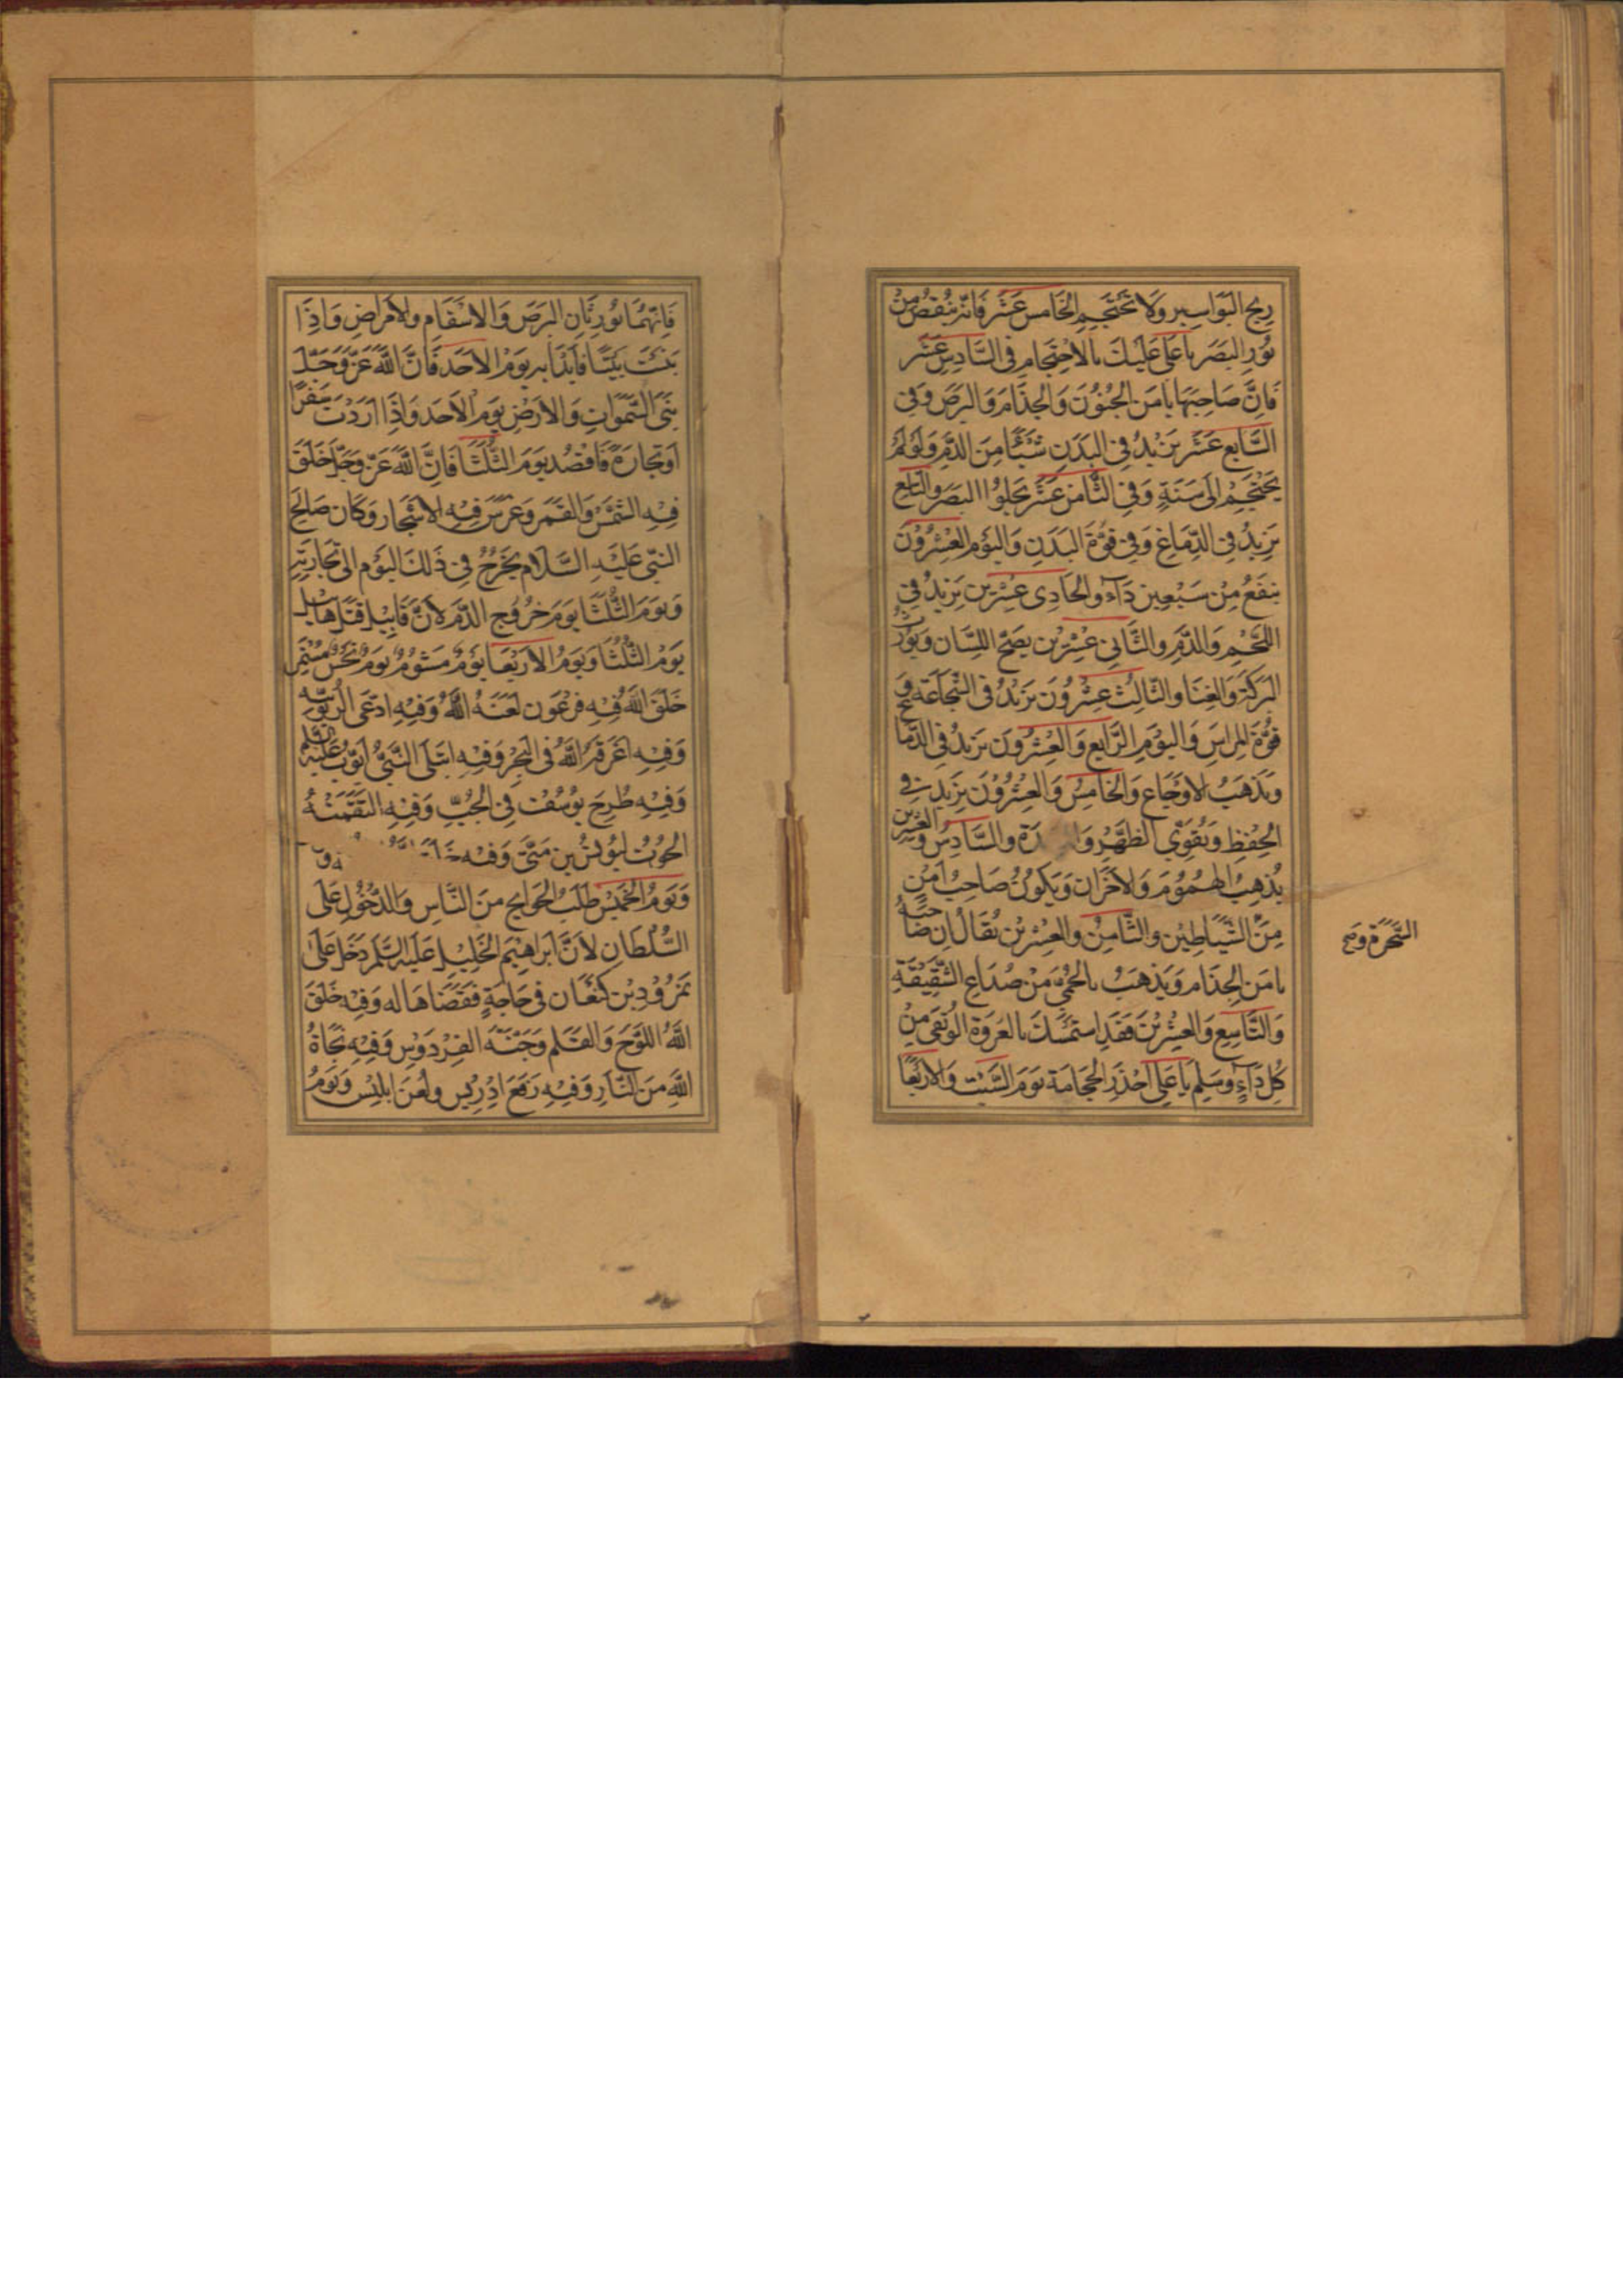 ريح البَوَاسِير وَلَا تَحْتَجِم الخَامس عَشَر فَانّه يُنقصُ مِنْ
نُورِ البَصَر يا عَلى عَلَيكَ بالاحْتِجَامِ فى السَّادِس عَشَر
فَانَّ صَاحِبَهَا يامَن الجُنُونَ وَالجذَامَ وَالبَرصَ وَفى
السَّابع عَشَر يَزيدُ فِى البَدَنِ شَيْئًا مِنَ الدَّم وَلَولَمْ
يَحْتَجِمُ الى سَنَةٍ وَفِى الثَّامن عَشَر يَجلوُا البَصَر والتاسع
يزيدُ فى الدِّمَاغ وَفِى قوَّة البَدَنِ وَاليَوم العشرُونَ
ينفَعُ مِنْ سَبْعين دَآء والحَادِى عِشْرين يَزيدُ فِى
اللَّحْمِ وَالدَّمِ والثَّانى عِشْرِين يصَحّ اللِّسَان ويورث
البَركَة وَالغِنَا والثّالِث عِشْرُونَ يَزيْدُ فى الشّجَاعَة وَ
قوَّة للرأسِ وَاليَوْمِ الرَّابع وَالعشْرُونَ يَزيدُ فى الدّما
وَيَذْهَبُ الاوْجَاع وَالخَامسُ وَالعِشْرُوْنَ يزيد فى
الحِفْظِ وَيُقوَّى الظَّهْرُ والسَّادِسُ وَالعشرين
يُذهِبُ الهمُوُمَ وَالاحْزَان وَيَكوُنُ صَاحِبُهَا مِن
السَّحَرَة وصح
مِنَ الشَّيَاطِيْن والثَّامِنُ والعِشْرِيْن يُقَالُ انْ صَاحبهُ
يامَن الجذَام وَيَذهَبُ بالحُمَّى مَنْ صُدَاعِ الشَّقِيْقَةِ
وَالتَّاسِعِ وَالعِشْرِيْنَ فَقَدِ استَمْسَكَ بالعُروَة الوُثقى مِنْ
كل دَآءٍ وسلم يا عَلى احْذَر الحجَامَة يَوَمَ السَّبْت وَالاربَعَا
فَانّهُمَا يُورِثانِ البَرَصَ وَالاسْقَامِ والامْرَاضِ وَاذَا
بَنَيتَ بَيتًا فَابْدَا به يَوَمْ الاحَد فَانَّ اللَّه عَزَّوَجَلَّ
بَنَى السَّمٰوَاتِ وَالارْضِ يَومُ الاَحَدَ وَاذَا ارَدْتَ سَفَرًا
اوتجارَةً فَاقصُد يوَمَ الثُّلثَا فَانَّ اللَّهَ عَزّ وَجَلّ خَلَقَ
فِيهِ الشَّمْسَ وَالقَمَر وَغَرسَ فيهِ الاشْجَار وَكَان صَالِحَ
النّبىّ عَلَيْهِ السَّلَام يَخْرُجُ فى ذَلكَ اليَوم الى تجَارَتِهِ
وَيَوَمَ الثُّلثَا يَومَ خرُوج الدَّم لَانَّ قَابِيْل قَتَل هابيل
يَومُ الثُّلثَا وَيَومُ الارْبَعَا يَومٌ مَشوُمٌ يَومُ نَحْسٍ مُسْتَمِر
خَلَقَ اللّه فيْهِ فرْعَون لَعَنَهُ اللّٰهُ وَفيهِ ادّعَى الرّبوبيّه
وَفيْهِ اغرَقَه اللّٰهُ فى البَحْر وَفيْهِ ابْتَلى النَّبىُّ ايّوبُ عليه السّلم
وَفيْهِ طُرحَ يوُسُفُ فى الجُبِّ وَفِيْهِ التَقَمَتْهُ
الحُوتُ ليُونُس بن مَتَّى وَفيْه
وَيَومُ الخَميْس طَلَبُ الحوَايج مِنَ النَّاسِ وَالدُّخُولِ عَلَى
السُّلْطَانِ لاَنَّ ابرَاهيْمَ الخَلِيْل عَليْه السَّلَم دَخَلَ عَلَى
نَمرُوْد بْن كَنْعَان فى حَاجَةٍ فقضَاهَا له وَفيه خَلَقَ
اللّٰهُ اللّوَحَ وَالقَلم وَجَنَّهَ الفِرْدَوْس وَفِيْهِ نجَاةُ
اللّهِ مِنَ النّار وَفيْهِ رَفعَ ادْرِيْس ولعنَ ابلِيْس وَيَوَمُ